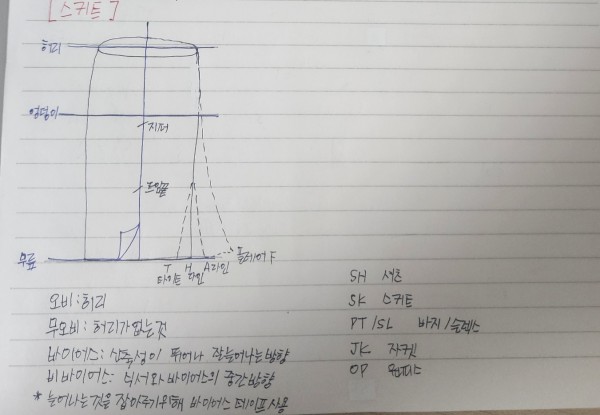 [스커트]
허리
엉덩이
지퍼
트임끝
무릎
플레어 F
T H A라인
타이트 라인
오비 : 허리
무오비 : 허리가 없는것
바이어스 : 신축성이 뛰어나 잘 늘어나는 방향
비 바이어스 : 식서와 바이어스의 중간 방향
* 늘어나는 것을 잡아주기위해 바이어스 테이프 사용
SH 셔츠
SK 스커트
PT/SL 바지/슬렉스
JK 자켓
OP 원피스